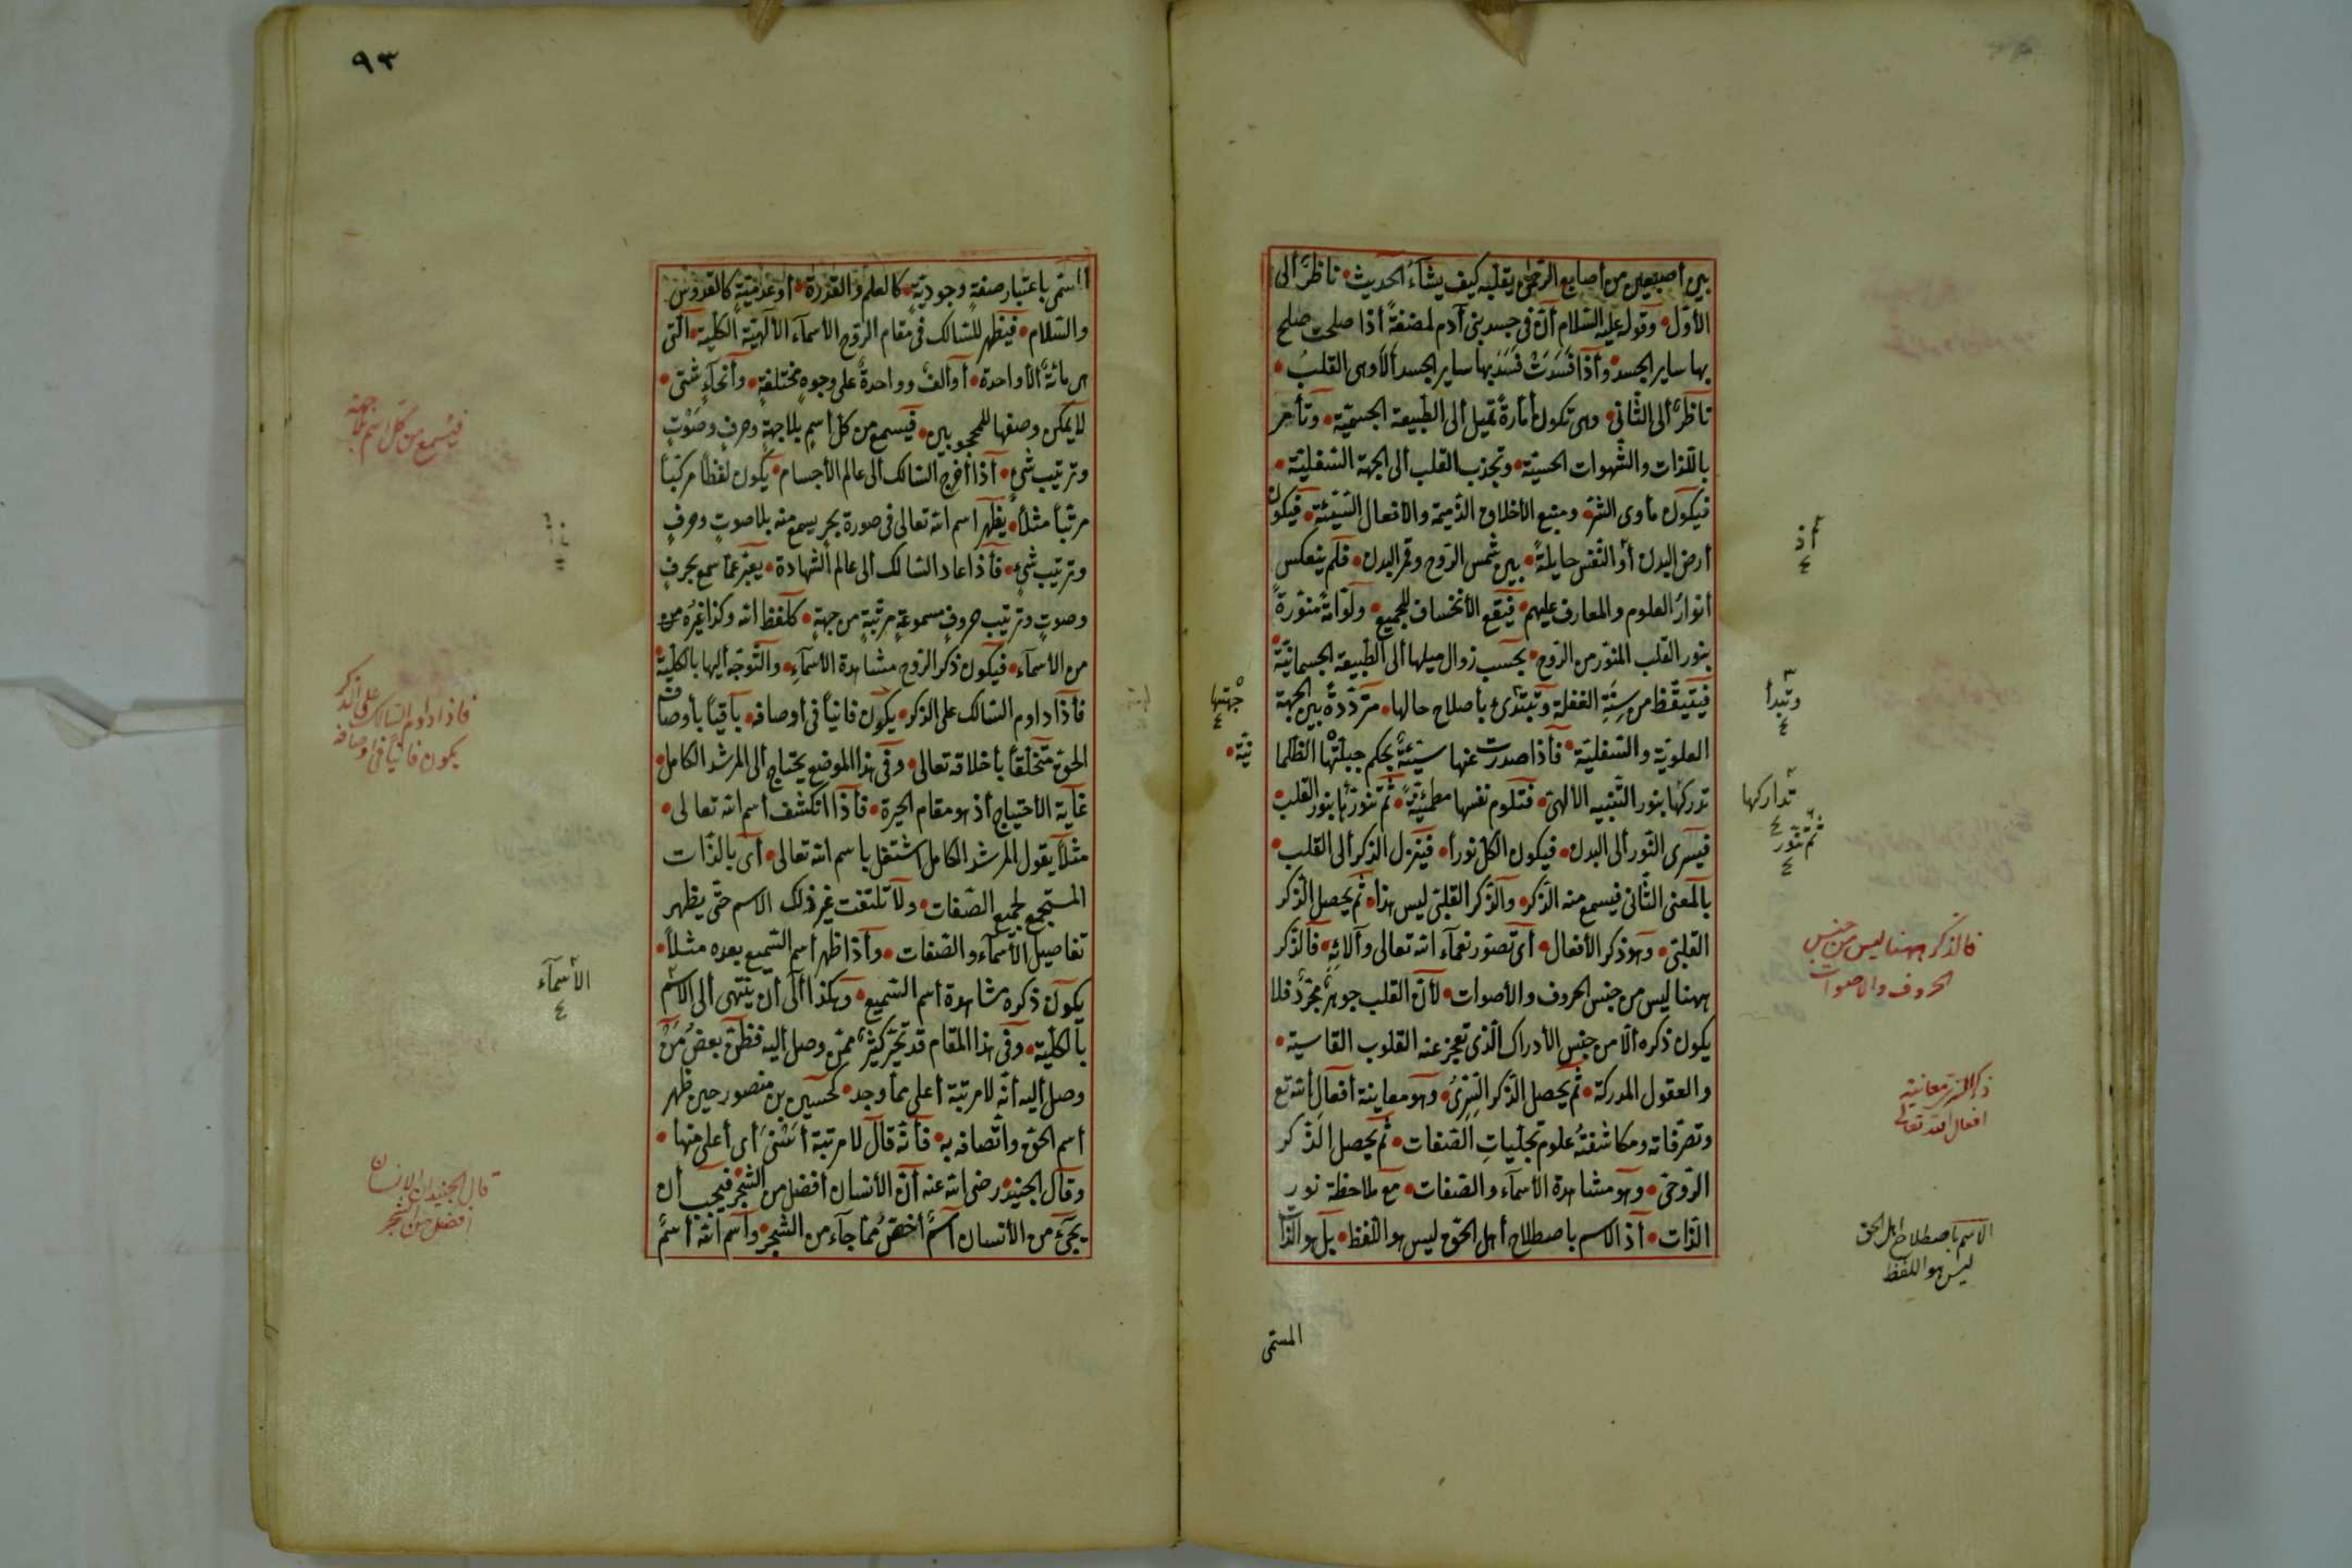 بين أصبعين من أصابع الرّحمن يقلّبه كيف يشآء الحديث ناظرٌ ألى
الأوّل وقوله عليه السّلام أنّ في جسد بنى آدم لمضغةً أذا صلحت صلح
بها ساير الجسد وأذا فسدت فسد بها ساير الجسد ألا وهى القلب
ناظرٌ ألى الثّانى وهى تكون أمّارةً تميل ألى الطّبيعة الجسميّة وتأمر
باللّذات والشّهوات الحسيّة وتجذب القلب ألى الجهة السّفليّة
فيكون مأوى الشّرّ ومنبع الأخلاق الذّميمة والأفعال السّيّئة فيكون
أرض البدن أو النّفس حايلةً بين شمس الرّوح وقمر البدن فلم ينعكس
أنوار العلوم والمعارف عليهم فيقع الأنخساف للجميع ولوّامةً منوّرةً
بنور القلب المنوّر من الرّوح بحسب زوال ميلها ألى الطّبيعة الجسمانيّة
فيتيقّظ من سنة الغفلة وتبتدئ بأصلاح حالها متردّدةً بين الجهة
العلويّة والسّفليّة فأذا صدرت عنها سيّئةٌ بحكم جبلّتها الظّلما
نيّة
تدركها بنور التّنبيه الألهىّ فتلوم نفسها مطمئنّةً ثمّ تنوّرها بنور القلب
فيسرى النّور ألى البدن فيكون الكلّ نوراً فينزل الذّكر ألى القلب
بالمعنى الثّانى فيسمع منه الذّكر والذّكر القلبىّ ليس هذا ثمّ يحصل الذّكر
القلبىّ وهو ذكر الأفعال أى تصوّر نعمآء الله تعالى وآلائه فالذّكر
ههنا ليس من جنس الحروف والأصوات لأنّ القلب جوهرٌ مجرّدٌ فلا
يكون ذكره ألّا من جنس الأدراك الّذى تعجز عنه القلوب القاسية
والعقول المدركة ثمّ يحصل الذّكر السّرّىّ وهو معاينة أفعال الله تع
وتصرّفاته ومكاشفة علوم تجلّيات الصّفات ثمّ يحصل الذّكر
الرّوحىّ وهو مشاهدة الأسمآء والصّفات مع ملاحظة نور
الذّات أذ الاسم باصطلاح أهل الحقّ ليس هو اللّفظ بل هو الذّات
المسمّى
أذ
٤
وتبدأ
٤
جهتها
٤
تداركها
٤
ثمّ تنوّر
٤
فالذكر ههنا ليس من جنس
الحروف والاصوات
ذكر السّرّ معاينة
افعال الله تعالى
الاسم باصطلاح اهل الحق
ليس هو اللفظ
٩٣
المسمّى باعتبار صفةٍ وجوديّةٍ كالعلم والقدرة أو عدميّةٍ كالقدّوس
والسّلام فيظهر للسّالك في مقام الرّوح الأسمآء الألهيّة الكلّية الّتى
هى مائةٌ ألّا واحدة أو ألفٌ وواحدةٌ على وجوهٍ مختلفةٍ وأنحآءٍ شتّى
لا يمكن وصفها للمحجوبين فيسمع من كلّ أسمٍ بلا جهةٍ وحرفٍ وصوتٍ
وترتيب شئٍ أذا أخرج السّالك ألى عالم الأجسام يكون لفظاً مركّباً
مرتّباً مثلاً يظهر اسم الله تعالى في صورة بحرٍ يسمع منه بلا صوتٍ وحرفٍ
وترتيب شئٍ فأذا عاد السّالك ألى عالم الشّهادة يعبّر عمّا سمع بحرفٍ
وصوتٍ وترتيب حروفٍ مسموعةٍ مرتّبةٍ من جهةٍ كلفظ الله وكذا غيره من
من الأسمآء فيكون ذكر الرّوح مشاهدة الأسمآء والتّوجّه أليها بالكلّية
فأذا داوم السّالك على الذّكر يكون فانياً في أوصافه باقياً بأوصاف
الحقّ متخلّقاً بأخلاقه تعالى وفي هذا الموضع يحتاج ألى المرشد الكامل
غاية الأحتياج أذ هو مقام الحيرة فأذا انكشف أسم الله تعالى
مثلاً يقول المرشد الكامل اشتغل باسم الله تعالى أى بالذّات
المستجمع لجميع الصّفات ولا تلتفت غير ذلك الاسم حتّى يظهر
تفاصيل الأسمآء والصّفات وأذا ظهر أسم السّميع بعده مثلاً
يكون ذكره مشاهدة أسم السّميع وهكذا ألى أن ينتهى ألى الاسم
بالكلّية وفي هذا المقام قد تحيّر كثيرٌ ممّن وصل أليه فظنّ بعض من
وصل أليه أنّه لا مرتبة أعلى ممّا وجد كحسين بن منصور حين ظهر
أسم الحقّ وأتّصافه به فأنّه قال لا مرتبة أسنى أى أعلى منها
وقال الجنيد رضى الله عنه أنّ الأنسان أفضل من الشّجر فيجب أن
يجئ من الأنسان أسمٌ أخصّ ممّا جآء من الشّجر وأسم الله أسمٌ
فيسمع من كلّ اسم بلا جهة
فاذا داوم السالك على الذكر
يكون فانيا فى اوصافه
الأسمآء
٤
قال الجنيد ان الانسان
افضل من الشجر